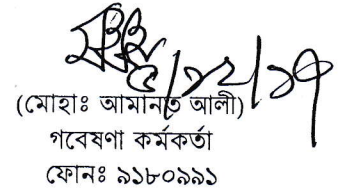 ৫/১২/১৭
(মোহাঃ আমানত আলী)
গবেষণা কর্মকর্তা
ফোনঃ ৯১৮০৯৯১